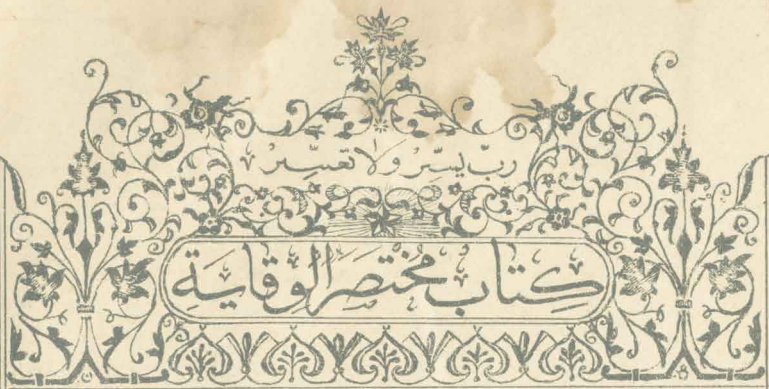 رب يسر ولا تعسر
كتاب مختصر الوقاية